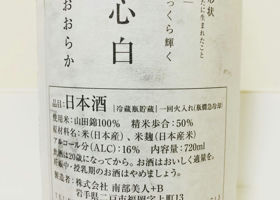 の形状
たに生まれたこと
っくら輝く
心白
おおらか
品目:日本酒 |冷蔵瓶貯蔵|一回火入れ(瓶燗急冷却)
使用米:山田錦100% 精米歩合:50%
原材料名:米(日本産)、米麹(日本産米)
アルコール分(ALC):16% 内容量:720ml
飲酒は20歳になってから。お酒はおいしく適量を。
妊娠中・授乳期のお酒はやめましょう。
製造者:株式会社 南部美人+B
岩手県二戸市福岡字上町13